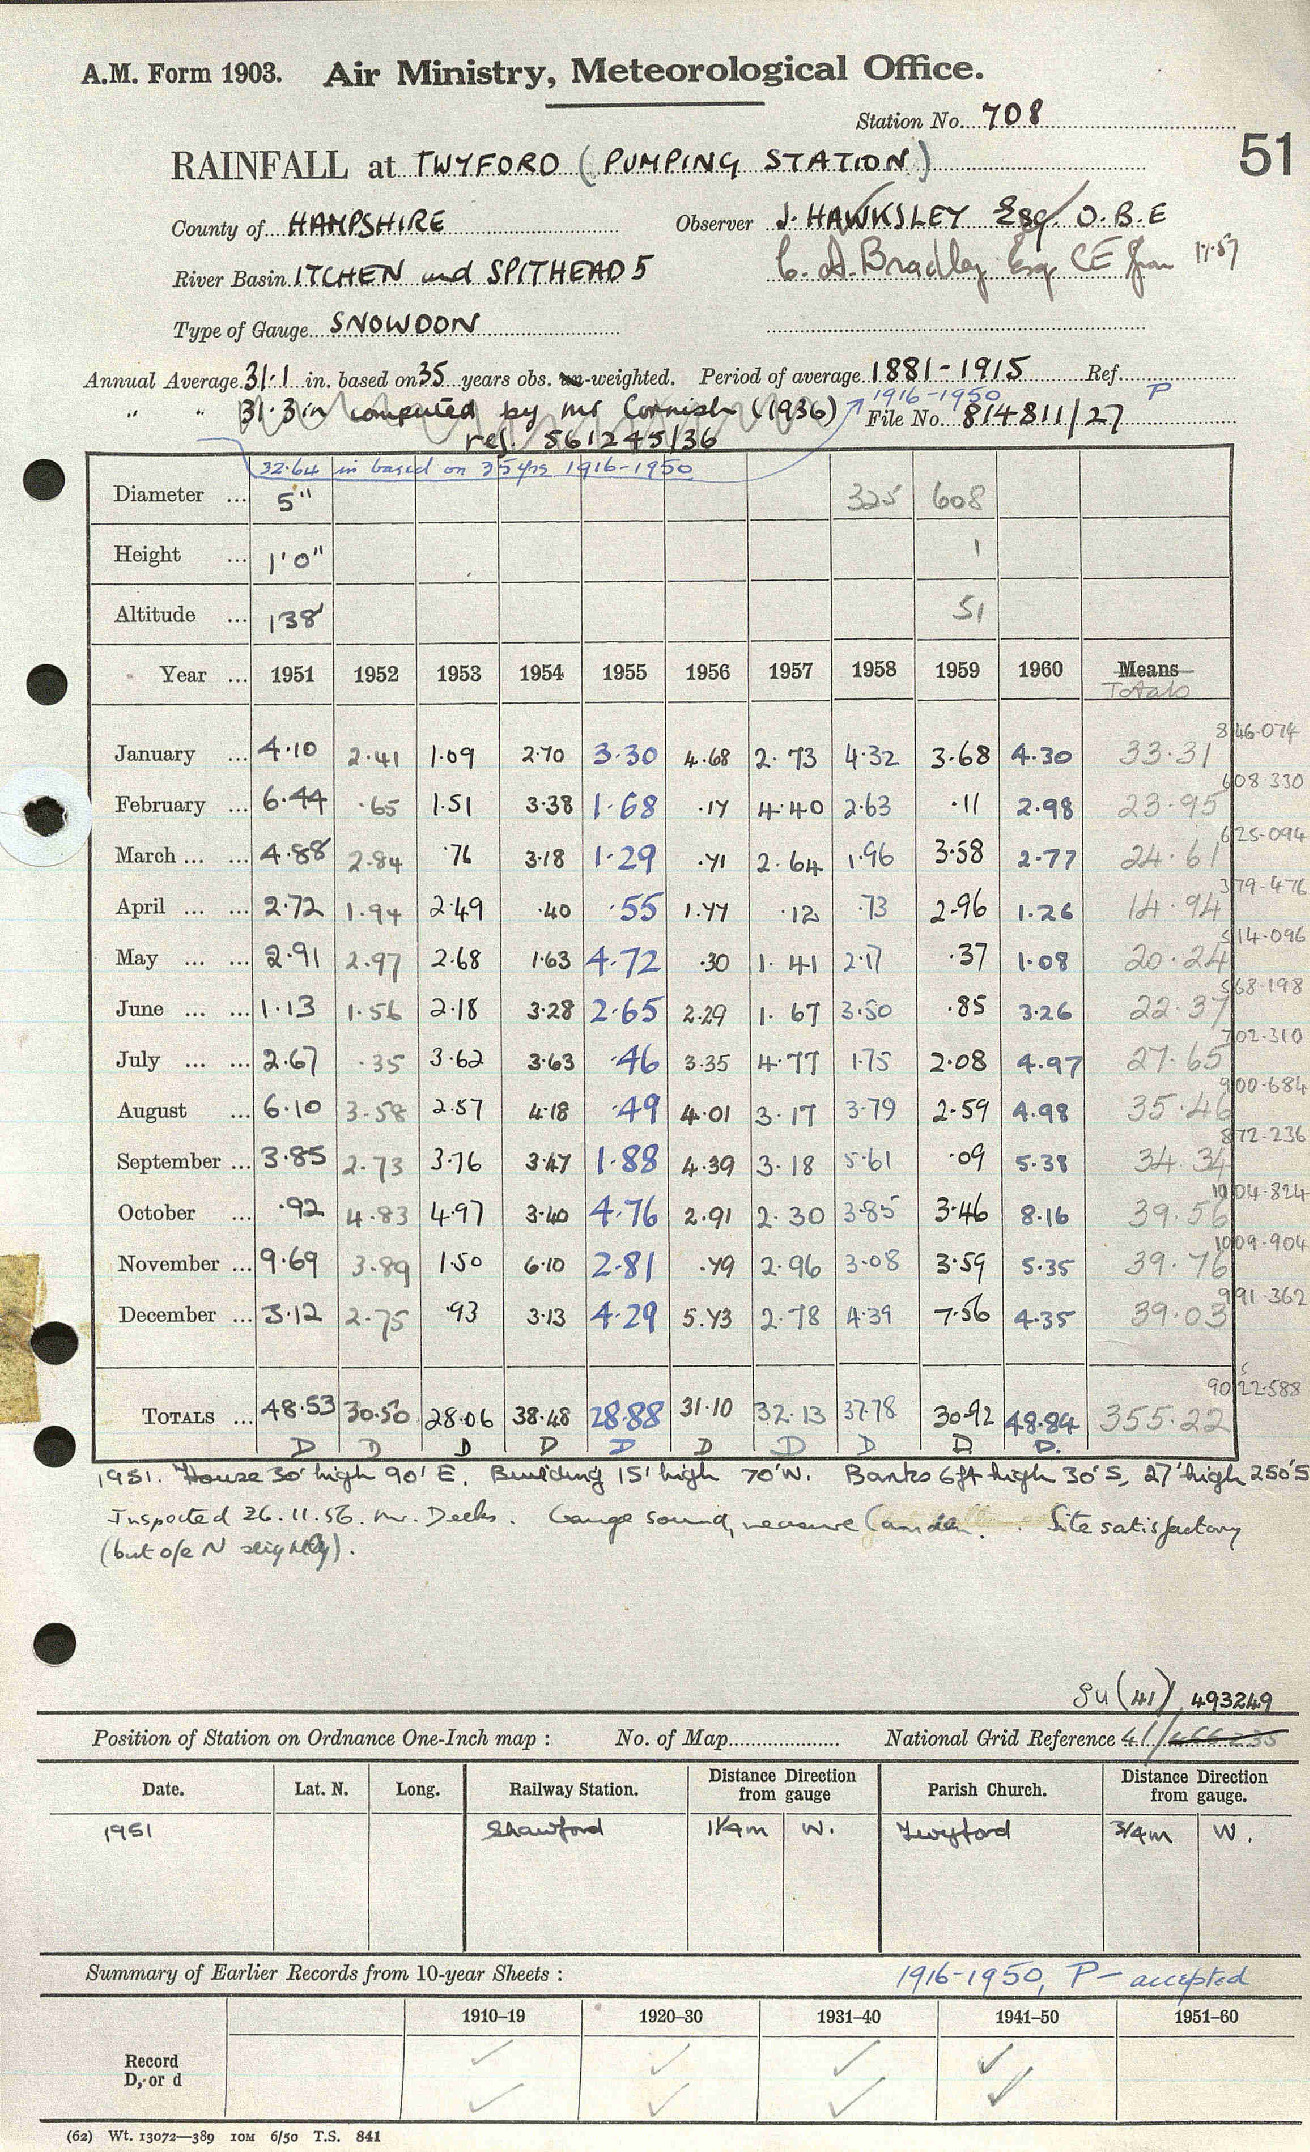 A.M. Form 1903. Air Ministry, Meteorological Office.
Station No. 708
51
RAINFALL at TWYFORD (PUMPING STATION)
County of HAMPSHIRE Observer J. HAWKSLEY Esq. O.B.E
River Basin ITCHEN and SPITHEAD 5 C. A. Bradley Esq CE from 11.57
Type of Gauge SNOWDON
Annual Average 31.1 in. based on 35 years obs. un-weighted. Period of average 1881-1915 Ref.
1916-1950 P
" " 31.3 in computed by Mr Cornish (1936) File No. 814811/27
ref. 561245/36
32.64 in based on 35 yrs 1916-1950
Diameter ... 5" 325 608
Height ... 1'0" 1
Altitude ... 138' 51
Year ... 1951 1952 1953 1954 1955 1956 1957 1958 1959 1960 Means
Totals
846.074
January ... 4.10 2.41 1.09 2.70 3.30 4.68 2.73 4.32 3.68 4.30 33.31
608.330
February ... 6.44 .65 1.51 3.38 1.68 .17 4.40 2.63 .11 2.98 23.95
625.094
March ... ... 4.88 2.84 .76 3.18 1.29 .71 2.64 1.96 3.58 2.77 24.61
379.476
April ... ... 2.72 1.94 2.49 .40 .55 1.77 .12 .73 2.96 1.26 14.94
514.096
May ... ... 2.91 2.97 2.68 1.63 4.72 .30 1.41 2.17 .37 1.08 20.24
568.198
June ... ... 1.13 1.56 2.18 3.28 2.65 2.29 1.67 3.50 .85 3.26 22.37
702.310
July ... ... 2.67 .35 3.62 3.63 .46 3.35 4.77 1.75 2.08 4.97 27.65
900.684
August ... 6.10 3.58 2.57 4.18 .49 4.01 3.17 3.79 2.59 4.98 35.46
872.236
September ... 3.85 2.73 3.76 3.47 1.88 4.39 3.18 5.61 .09 5.38 34.34
1004.824
October ... .92 4.83 4.97 3.40 4.76 2.91 2.30 3.85 3.46 8.16 39.56
1009.904
November ... 9.69 3.89 1.50 6.10 2.81 .79 2.96 3.08 3.59 5.35 39.76
991.362
December ... 3.12 2.75 .93 3.13 4.29 5.73 2.78 4.39 7.56 4.35 39.03
9022.588
TOTALS ... 48.53 30.50 28.06 38.48 28.88 31.10 32.13 37.78 30.92 48.84 355.22
D D D D D D D D D D.
1951. House 30' high 90' E. Building 15' high 70' W. Banks 6ft high 30' S, 27' high 250' S
Inspected 26.11.56. Mr. Deeks. Gauge sound, measure Camden. Site satisfactory
(but o/e N slightly).
SU (41) 493249
Position of Station on Ordnance One-Inch map : No. of Map National Grid Reference 41/466235
Date. Lat. N. Long. Railway Station. Distance from Direction gauge Parish Church. Distance from Direction gauge.
1951 Shawford 1¼m W. Twyford 3/4m W.
Summary of Earlier Records from 10-year Sheets : 1916-1950, P — accepted
1910–19 1920–30 1931–40 1941–50 1951–60
Record
D, or d
(62) Wt. 13072—389 10M 6/50 T.S. 841